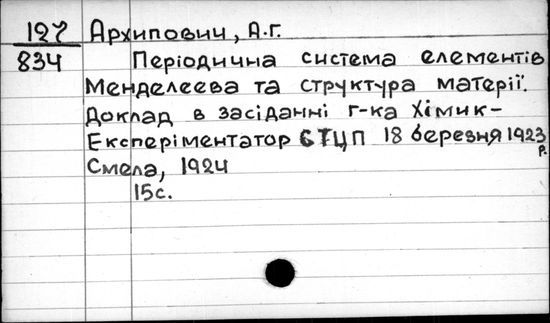 127 Архипович, А.Г.
834 Періодична система елементів
Менделеєва та структура матерії.
Доклад в засіданні г-ка Хімик-
Експеріментатор СТЦП 18 березня 1923 р.
Смела, 1924
15с.